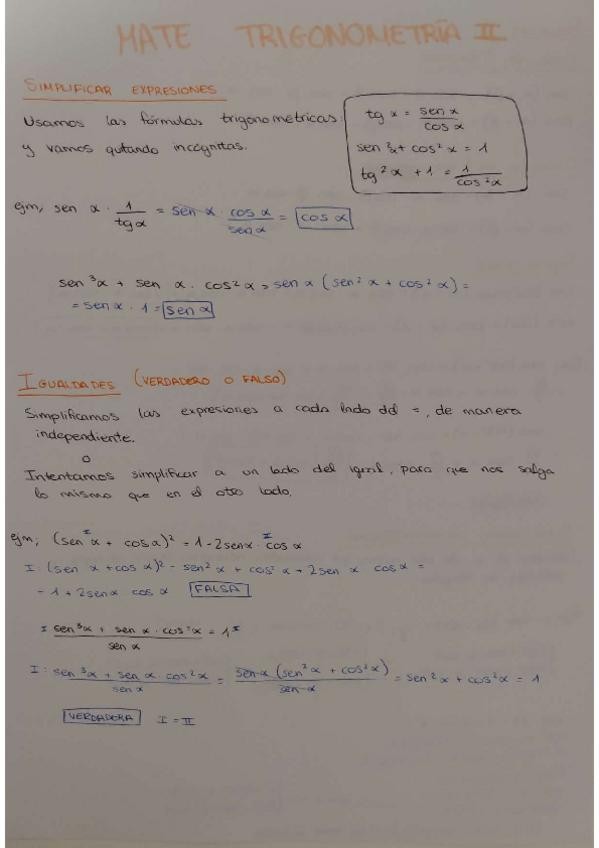 MATE TRIGONOMETRÍA II
SIMPLIFICAR EXPRESIONES
Usamos las fórmulas trigonometricas
y vamos quitando incógnitas.
tg α = sen α / cos α
sen²α + cos²α = 1
tg²α + 1 = 1 / cos²α
ejm, sen α · 1/tg α = sen α · cos α / sen α = cos α
sen³α + sen α · cos²α = sen α (sen²α + cos²α) =
= sen α · 1 = sen α
IGUALDADES (VERDADERO O FALSO)
Simplificamos las expresiones a cada lado del =, de manera
independiente.
O
Intentamos simplificar a un lado del igual, para que nos salga
lo mismo que en el otro lado.
I I
ejm, (sen α + cos α)² = 1 - 2sen α · cos α
I: (sen α + cos α)² = sen²α + cos²α + 2sen α cos α =
= 1 + 2sen α cos α FALSA
I sen³α + sen α · cos²α / sen α = 1 II
I: sen³α + sen α · cos²α / sen α = sen α (sen²α + cos²α) / sen α = sen²α + cos²α = 1
VERDADERA I = II